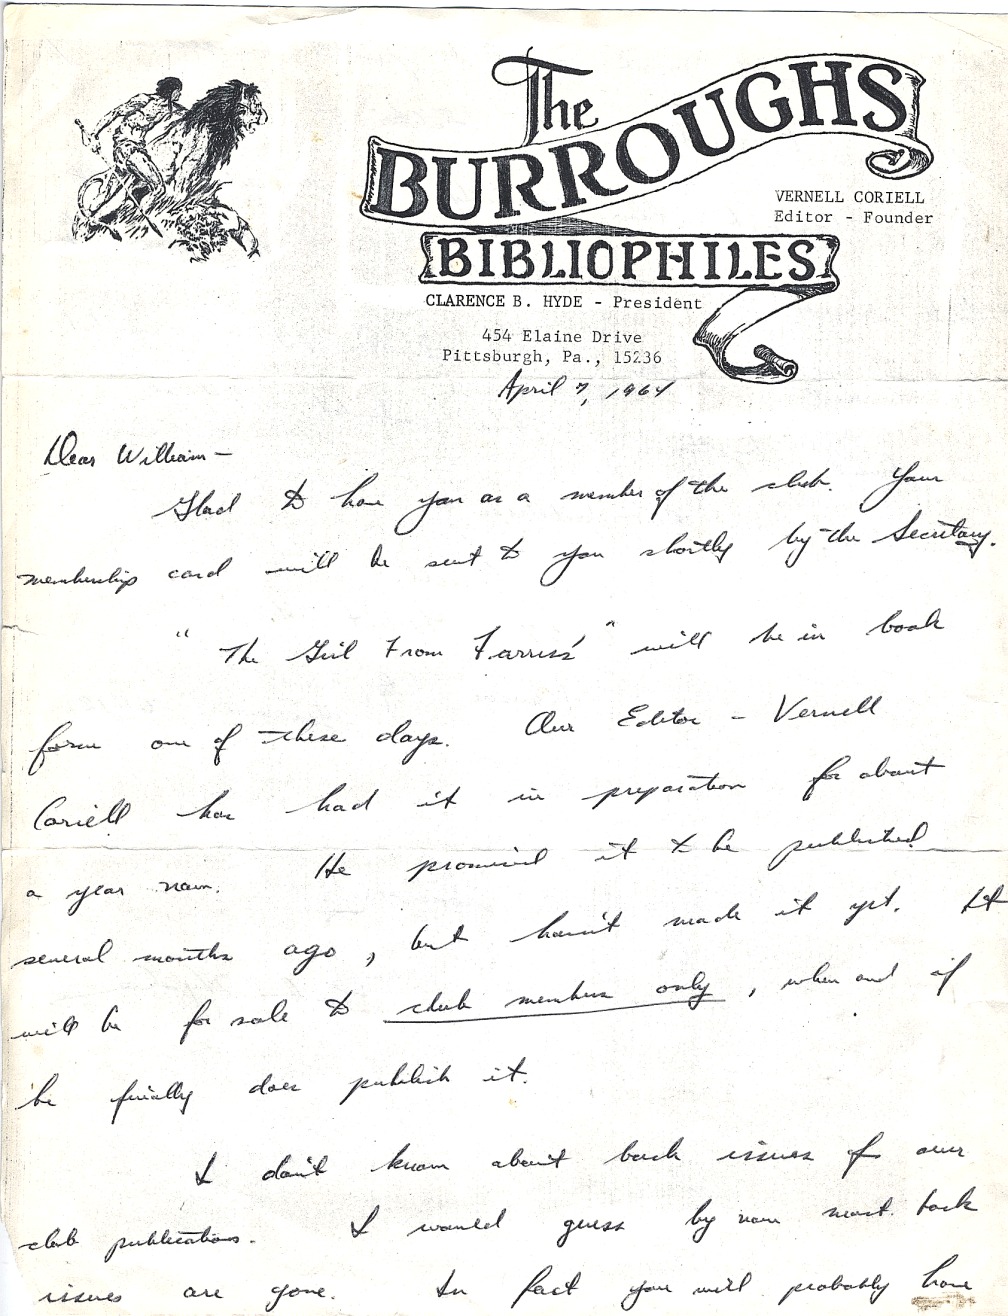 The
BURROUGHS
BIBLIOPHILES
VERNELL CORIELL
Editor - Founder
CLARENCE B. HYDE - President
454 Elaine Drive
Pittsburgh, Pa., 15236
April 7, 1964
Dear William-
Glad to have you as a member of the club. Your
membership card will be sent to you shortly by the Secretary.
"The Girl From Farris's" will be in book
form one of these days. Our Editor - Vernell
Coriell has had it in preparation for about
a year now. He promised it to be published
several months ago, but hasn't made it yet. It
will be for sale to club members only, when and if
he finally does publish it.
I don't know about back issues of our
club publications. I would guess by now most back
issues are gone. In fact you will probably have